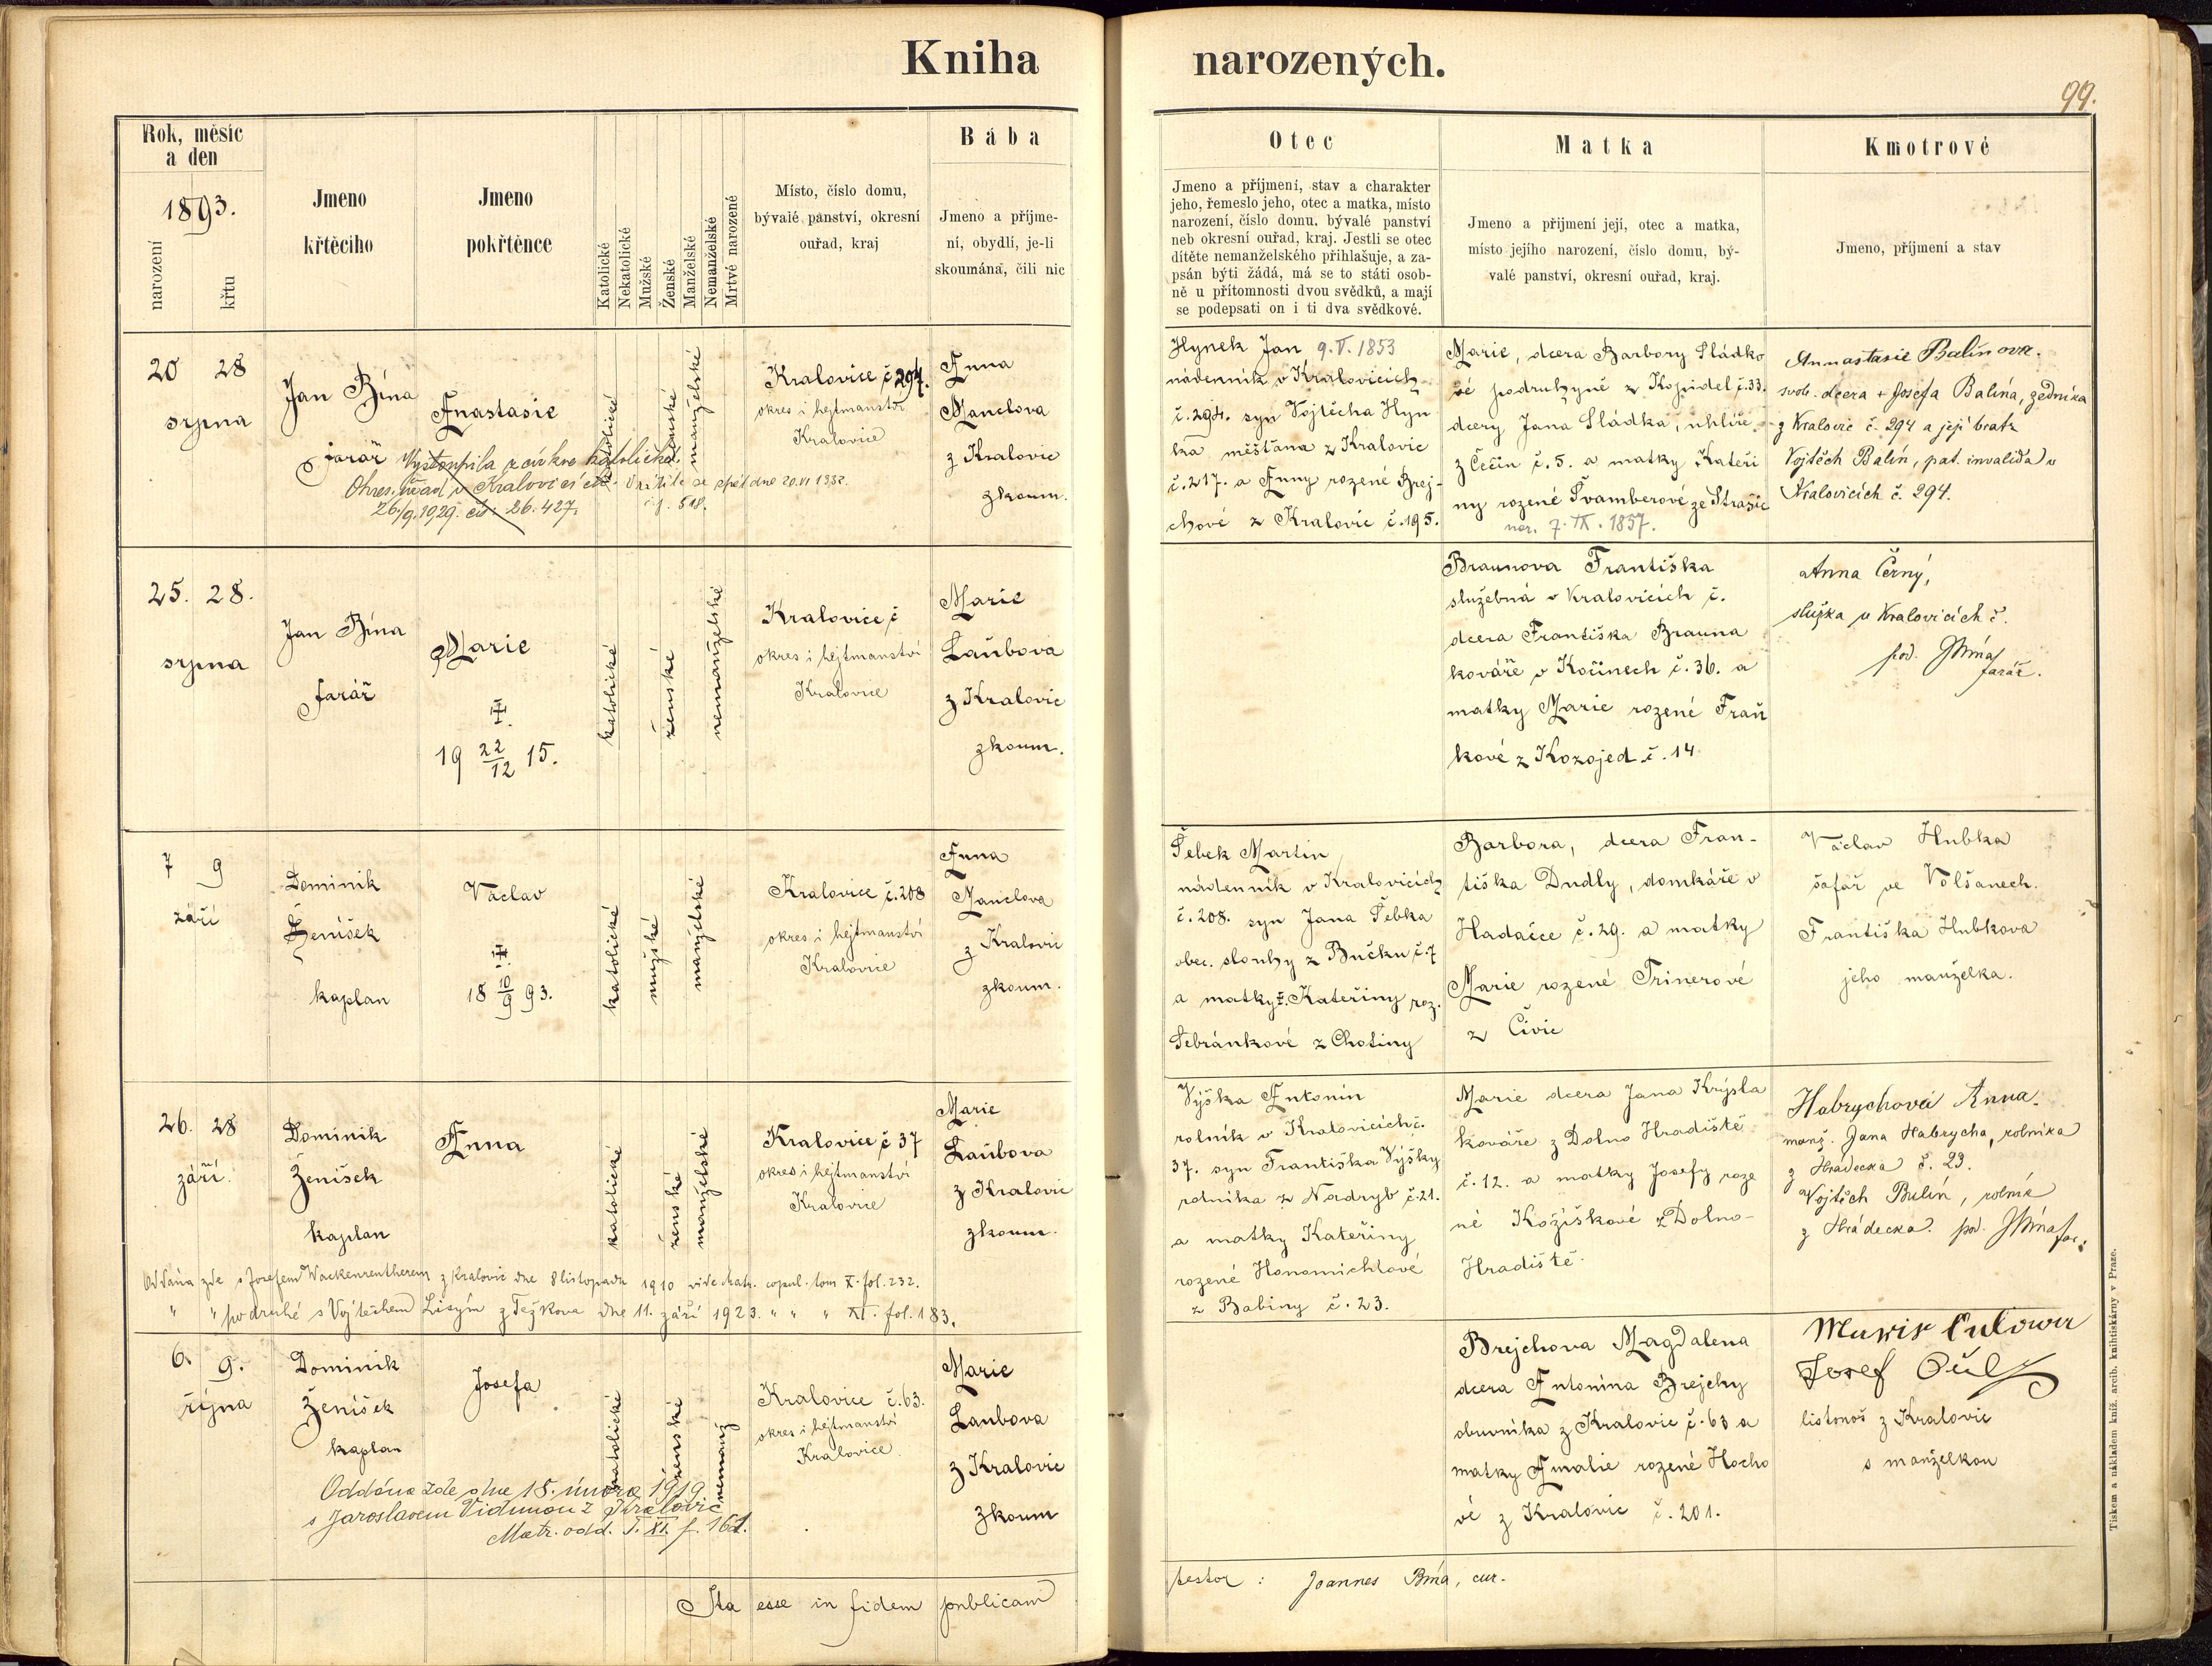 Kniha narozených.
99.
Rok, měsíc
a den
1893.
narození
křtu
Jmeno
křtěcího
Jmeno
pokřtěnce
Katolické
Nekatolické
Mužské
Ženské
Manželské
Nemanželské
Mrtvé narozené
Místo, číslo domu,
bývalé panství, okresní
ouřad, kraj
Bába
Jmeno a příjme-
ní, obydlí, je-li
skoumána, čili nic
Otec
Jmeno a příjmení, stav a charakter
jeho, řemeslo jeho, otec a matka, místo
narození, číslo domu, bývalé panství
neb okresní ouřad, kraj. Jestli se otec
dítěte nemanželského přihlašuje, a za-
psán býti žádá, má se to státi osob-
ně u přítomnosti dvou svědků, a mají
se podepsati on i ti dva svědkové.
Matka
Jmeno a příjmení její, otec a matka,
místo jejího narození, číslo domu, bý-
valé panství, okresní ouřad, kraj.
Kmotrové
Jmeno, příjmení a stav
20 28
srpna
Jan Bína
farář
Anastasie
Vystoupila z církve katolické.
Okres. úřad v Kralovicích
26./9. 1929. čís: 26.427.
Vrátila se zpět dne 20.VI 1952.
č.j. 518.
katolické
ženské
manželské
Kralovice č 294.
okres i hejtmanství
Kralovice
Anna
Manclova
z Kralovic
zkoum.
Hynek Jan 9.V.1853
nádenník v Kralovicích
č.294. syn Vojtěcha Hyn
ka měšťana z Kralovic
č.217. a Anny rozené Brej-
chové z Kralovic č.195.
Marie, dcera Barbory Sládko
vé podruhyně z Kopidel č.33.
dcery Jana Sládka, uhlíře
z Čečín č.5. a matky Kateři
ny rozené Švamberové ze Strašic
nar. 7.IX.1857.
Annastasie Balínova.
svob. dcera + Josefa Balína, zedníka
z Kralovic č. 294 a její bratr
Vojtěch Balín, pat. invalida v
Kralovicích č. 294.
25. 28.
srpna
Jan Bína
farář
Marie
I.
19 22/12 15.
katolické
ženské
nemanželské
Kralovice č
okres i hejtmanství
Kralovice
Marie
Laubova
z Kralovic
zkoum.
Braunova Františka
služebná v Kralovicích č.
dcera Františka Brauna
kováře v Kočinech č.36. a
matky Marie rozené Fraň
kové z Kozojed č.14.
Anna Černý,
služka v Kralovicích č.
pod. JBína
farář.
7 9
září
Dominik
Ženíšek
kaplan
Václav
I.
18 10/9 93.
katolické
mužské
manželské
Kralovice č.208
okres i hejtmanství
Kralovice
Anna
Manclova
z Kralovic
zkoum.
Šebek Martin
nádenník v Kralovicích
č.208. syn Jana Šebka
obec. slouhy z Bučku č.7
a matky Kateřiny roz.
Šebránkové z Chotiny
Barbora, dcera Fran-
tiška Dudly, domkáře v
Hadačce č.29. a matky
Marie rozené Trinerové
z Čivic
Václav Hubka
šafář ve Volšanech.
Františka Hubkova
jeho manželka.
26. 28
září.
Dominik
Ženíšek
kaplan
Anna
katolické
ženské
manželské
Kralovice č 37
okres i hejtmanství
Kralovice
Marie
Laubova
z Kralovic
zkoum.
Výška Antonín
rolník v Kralovicích č.
37. syn Františka Výšky
rolníka z Nadryb č.21.
a matky Kateřiny
rozené Honomichlové
z Babiny č.23.
Marie dcera Jana Krýsla
kováře z Dolno Hradiště
č.12. a matky Josefy roze
né Kožíškové z Dolno-
Hradiště.
Habrychová Anna.
manž. Jana Habrycha, rolníka
z Hrádecka č. 23.
Vojtěch Bulín, rolník
z Hrádecka. pod. JBína far.:
Oddána zde s Josefem Wackenreutherem z Kralovic dne 8 listopadu 1910 vide matr. copul. tom X. fol. 232.
" " podruhé s Vojtěchem Lisým z Težkova dne 11. září 1923. " " " XI. fol. 183.
6. 9.
října
Dominik
Ženíšek
kaplan
Josefa
katolické
ženské
nemanž
Kralovice č.63.
okres i hejtmanství
Kralovice.
Marie
Laubova
z Kralovic
zkoum
Brejchova Magdalena
dcera Antonína Brejchy
obuvníka z Kralovic č.63 a
matky Amalie rozené Hocho
vé z Kralovic č.201.
Josef
listonoš z Kralovic
s manželkou
Oddána zde dne 18. února 1919
s Jaroslavem Vidunou z Kralovic
Matr. odd. T. XI. f. 161.
Ita esse in fidem publicam
testor : Joannes Bína, cur.
Tiskem a nákladem kníž. arcib. knihtiskárny v Praze.